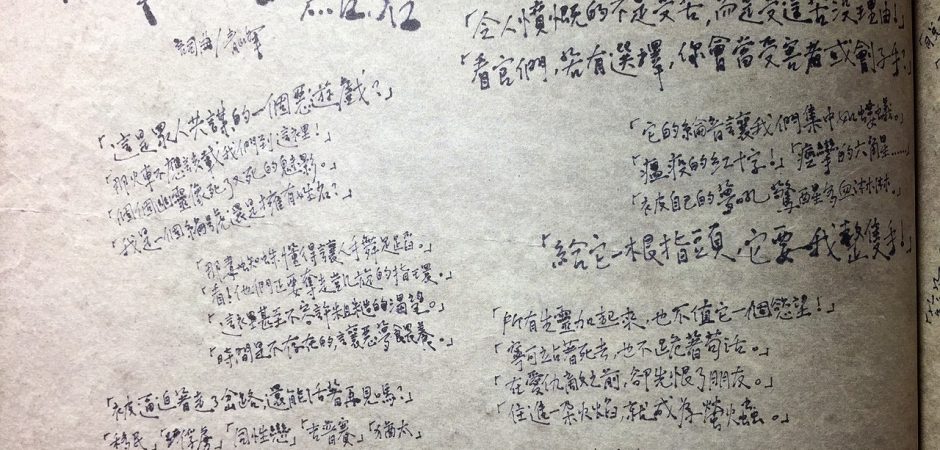 詞曲/
「這是眾人共謀的一個惡遊戲？」
「那火車不應該載我們到這裡！」
「個個幽靈像死了又死的魅影。」
「我是一個編號還是擁有姓名？」
「那毒蜘蛛懂得讓人手舞足蹈。」
「看！他們正要奪走凱旋的指環。」
「這裡甚至不容許的渴望。」
「時間是不存在的，讓惡夢餵養。」
「被逼迫著走了岔路，還能活著再見嗎？」
「移民」「俘虜」「同性戀」「吉普賽」「猶太」
「令人憤慨的不是受苦，而是受這苦沒理由！」
「看官們，若有選擇，你會當受害者或劊子手？」
「它的綸音讓我們集中如螻蟻。」
「癱瘓的紅十字！」「痙攣的六角星……」
「被自己的夢吼驚醒多血淋淋。」
「給它一根指頭，它要我整隻手！」
「所有生靈加起來，也不值它一個慾望！」
「寧可站著死去，也不跪著苟活。」
「在愛仇敵之前，卻先恨了朋友。」
「住進一朵火焰就成為螢火蟲。」